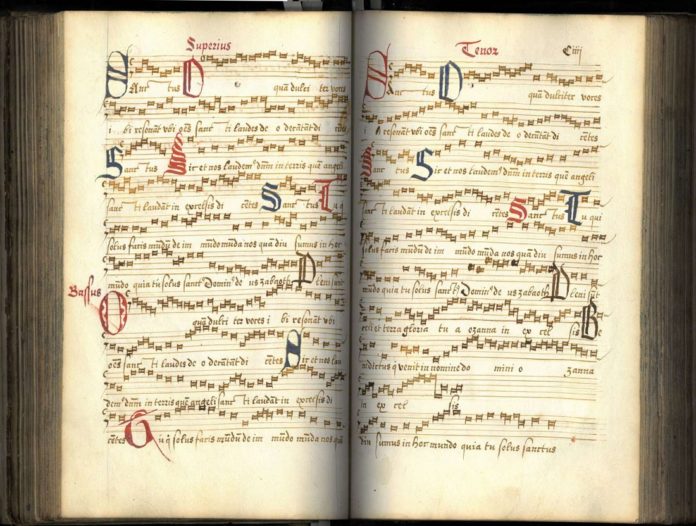 Superius
Sanc tus O quā dulci ter vores
i bi resonāt vbi oēs sanc ti laudes de o derātāt di cētes
Sanc tus Sir et nos laudem dn̄m in terris quē angeli
sanc ti laudāt in excelsis di cētes Sanc tus Tu q
solus faris mūdū de im mūdo mūda nos quā diu sumus in hor
mūdo quia tu solus sanc Domin de us zabaoth Pleni sūt
Bassus
O quā dulci ter vores i bi resonāt vbi
oēs sanc ti laudes de o derātāt di cētes Sir et nos lau
dem dn̄m in terris quē angeli sanc ti laudāt in excelsis di
cētes Tu q solus faris mūdū de im mūdo mūda nos quā
Tenor
Ciiij
Sanc tus O quā dulciter vores
i resonāt vbi oēs sanc ti laudes de o derātāt di cētes
Sir et nos laudem dn̄m in terris quē angeli
sanc ti laudāt in excelsis di cētes Sanc tus Tu qui
solus faris mūdū de im mūdo mūda nos quā diu sumus in hor
mūdo quia tu solus sanc Domin de us zabaoth Pleni sūt
celi et terra gloria tu a ozanna in ex cel sis Be
nedictus q venit in nomine do mini o zanna
in ex cel sis
diu sumus in hor mundo quia tu solus sanctus